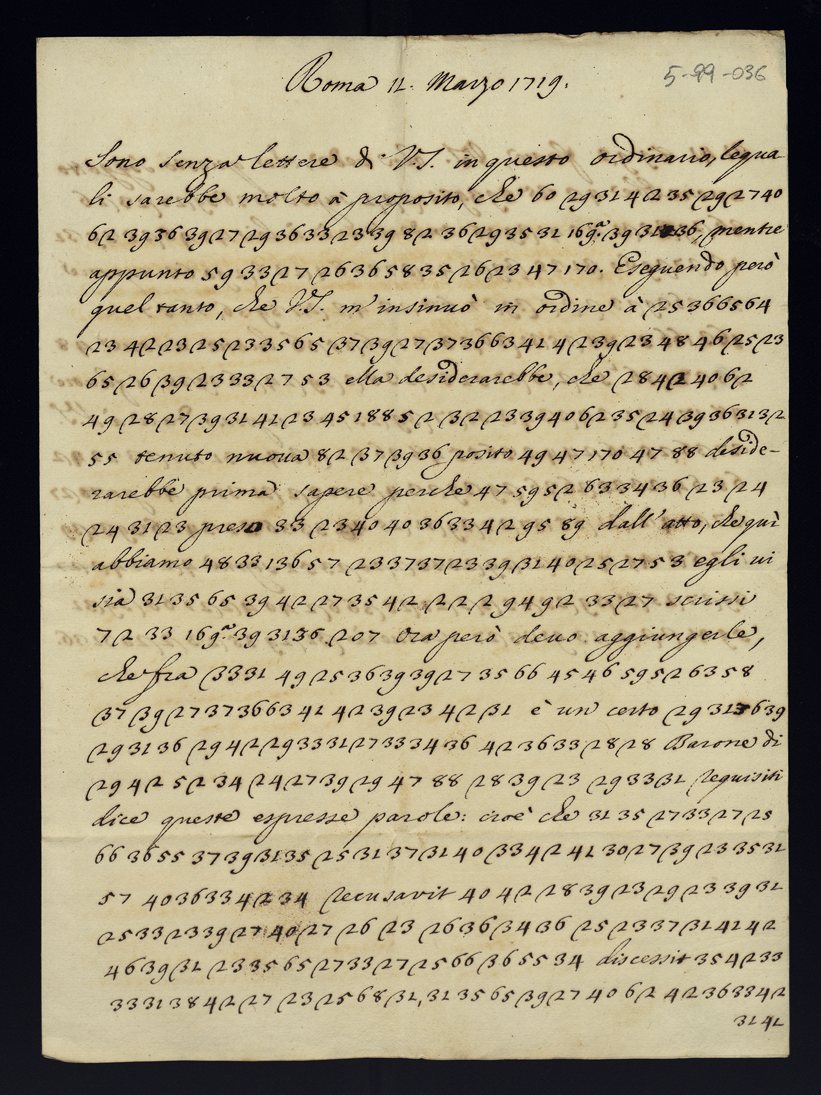 Roma 11. Marzo 1719.
5-99-036
Sono senza lettere di V.S. in questo ordinario, lequa
li sarebbe molto à proposito, che 60 29 31 42 35 29 27 40
62 39 36 39 27 29 36 33 23 39 82 36 29 35 31 16 39 31 36, mentre
appunto 59 33 27 26 36 58 35 26 23 47 170. Eseguendo però
quel tanto, che V.S. m'insinuò in ordine à 25 36 65 64
23 42 23 25 23 35 65 37 39 27 37 36 63 41 42 39 23 48 46 25 23
65 26 39 23 33 27 53 ella desiderarebbe, che 28 42 40 62
49 28 27 39 31 41 23 45 188 52 32 23 39 40 62 35 24 39 36 31 32
55 tenuto nuova 82 37 39 36 posito 49 47 170 47 88 deside-
rarebbe prima sapere perche 47 59 52 63 34 36 23 24
24 31 23 preso 33 23 40 40 36 33 42 95 89 dall'atto, che quì
abbiamo 48 33 136 57 23 37 37 23 39 31 40 25 27 53 egli vi
sia 31 35 65 39 42 27 35 42 22 29 49 2 33 27 scrissi
72 33 16 39 31 36 207 Ora però devo aggiungerle,
che fra 33 31 49 25 36 39 39 27 35 66 45 46 59 52 63 58
37 39 27 37 36 63 41 42 39 23 42 31 è un certo 29 31 36 39
29 31 36 29 42 29 33 31 27 33 34 36 42 36 33 28 28 Barone di
29 42 52 34 24 27 39 29 47 88 28 39 23 29 33 31 requisiti
dice queste espresse parole: cioè che 31 35 27 33 27 25
66 36 55 37 39 31 35 25 31 37 31 40 33 42 41 30 27 39 23 35 31
57 40 36 33 42 34 recusavit 40 42 28 39 23 29 23 39 31
25 33 23 39 27 40 27 26 23 26 36 34 36 25 23 37 31 41 42
46 39 31 23 35 65 27 33 27 25 66 36 55 34 discessit 35 42 33
33 31 38 42 27 23 25 68 31, 31 35 65 39 27 40 62 42 36 33 42
31 41